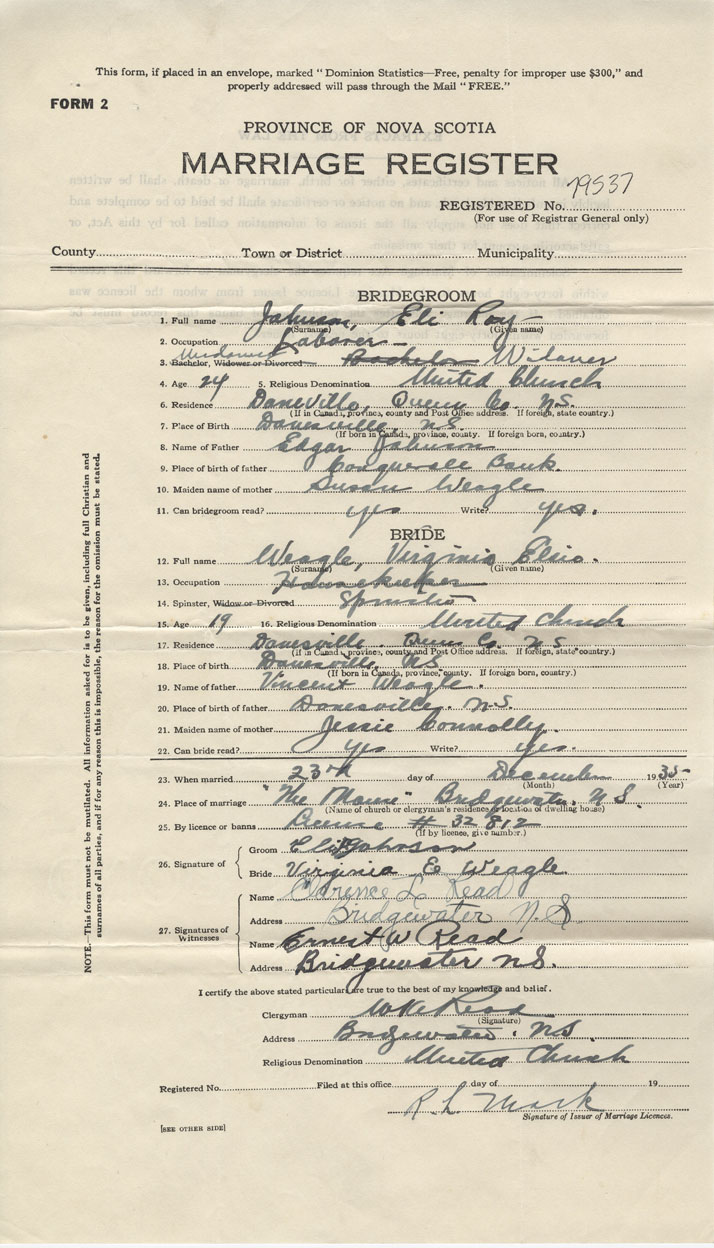 This form, if placed in an envelope, marked "Dominion Statistics—Free, penalty for improper use $300," and
properly addressed will pass through the Mail "FREE."
FORM 2
PROVINCE OF NOVA SCOTIA
MARRIAGE REGISTER
REGISTERED No. 79537
(For use of Registrar General only)
County Town or District Municipality
BRIDEGROOM
1. Full name Johnson, Eli Roy
(Surname) (Given name)
2. Occupation Laborer
3. Bachelor, Widower or Divorced Bachelor Widower
4. Age 24 5. Religious Denomination United Church
6. Residence Danesville, Queens Co. N.S.
(If in Canada, province, county and Post Office address. If foreign, state country.)
7. Place of Birth Danesville, N.S.
(If born in Canada, province, county. If foreign born, country.)
8. Name of Father Edgar Johnson
9. Place of birth of father Conquerall Bank.
10. Maiden name of mother Susan Weagle
11. Can bridegroom read? yes Write? yes.
BRIDE
12. Full name Weagle, Virginia Elsie.
(Surname) (Given name)
13. Occupation Housekeeper
14. Spinster, Widow or Divorced Spinster
15. Age 19 16. Religious Denomination United Church
17. Residence Danesville. Queens Co. N S
(If in Canada, province, county and Post Office address. If foreign, state country.)
18. Place of birth Danesville, NS.
(If born in Canada, province, county. If foreign born, country.)
19. Name of father Vincent Weagle.
20. Place of birth of father Danesville, N.S.
21. Maiden name of mother Jessie Connolly.
22. Can bride read? yes Write? yes.
23. When married 23rd day of December 1935
(Month) (Year)
24. Place of marriage "The Manse" Bridgewater, N.S.
(Name of church or clergyman's residence or location of dwelling house)
25. By licence or banns License # 32812
(If by licence, give number.)
26. Signature of
Groom Eli Johnson
Bride Virginia E Weagle
27. Signatures of Witnesses
Name Clarence L. Read
Address Bridgewater N.S.
Name Ernest W Read
Address Bridgewater N.S.
I certify the above stated particulars are true to the best of my knowledge and belief.
Clergyman Read
(Signature)
Address Bridgewater, N.S.
Religious Denomination United Church
Registered No. Filed at this office day of 19
R. L. Mack
Signature of Issuer of Marriage Licences.
[SEE OTHER SIDE]
NOTE.—This form must not be mutilated. All information asked for is to be given, including full Christian and
surnames of all parties, and if for any reason this is impossible, the reason for the omission must be stated.